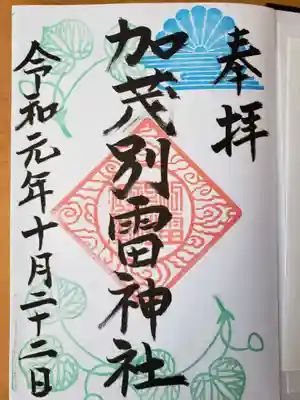 奉拝
加茂別雷神社
令和元年十月二十二日